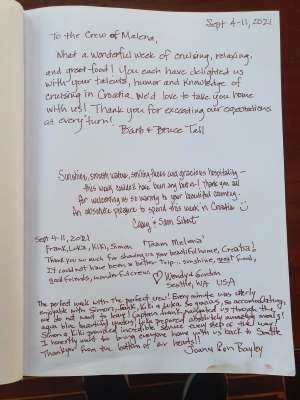 Sept 4-11, 2021
To the Crew of Melena,
What a wonderful week of cruising, relaxing,
and great food! You each have delighted us
with your talents, humor and knowledge of
cruising in Croatia. We'd love to take you home
with us! Thank you for exceeding our expectations
at every turn!
Barb & Bruce Tall
Sunshine, smooth waters, smiling faces and gracious hospitality –
this week couldn't have been any better! Thank you all
for welcoming us so warmly to your beautiful country.
An absolute pleasure to spend this week in Croatia
Casey & Sam
Sept 4-11, 2021
Frank, Luka, Kiki, Simon "Team Melena"
Thank you so much for sharing us your beautiful home, Croatia!
It could not have been a better trip... sunshine, great food,
good friends, wonderful crew
Wendy & Gordon
Seattle, WA USA
The perfect week with the perfect crew! Every minute was utterly
enjoyable with Simon, Frank, Kiki & Luka. So gracious, so accommodating,
we do not want to leave! Captain Frank navigated us through the
aqua blue beautiful waters, Luka prepared absolutely amazing meals!
Simon & Kiki provided incredible service every step of the way!
I honestly want to bring everyone home with us back to Seattle
Thankyou from the bottom of our hearts!!
Joany Bayley